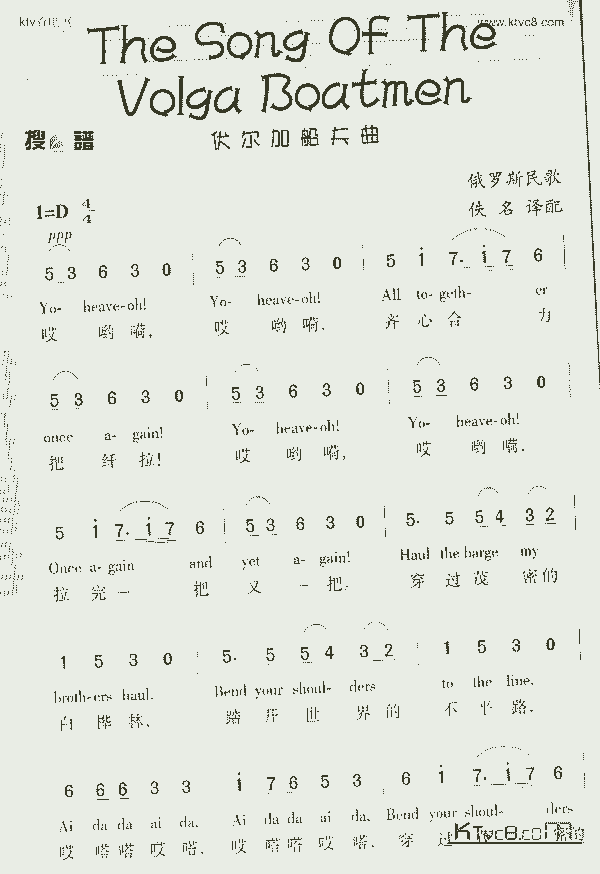 www.ktvc8.com
The Song Of The
Volga Boatmen
搜 譜
伏尔加船夫曲
俄罗斯民歌
1=D 4/4
佚 名 译配
ppp
5 3 6 3 0 | 5 3 6 3 0 | 5 i 7. i 7 6 |
Yo- heave-oh! Yo- heave-oh! All to-geth- er
哎 哟嗬, 哎 哟嗬, 齐心合 力
5 3 6 3 0 | 5 3 6 3 0 | 5 3 6 3 0 |
once a- gain! Yo- heave-oh! Yo- heave-oh!
把 纤拉! 哎 哟嗬, 哎 哟嗬.
5 i 7. i 7 6 | 5 3 6 3 0 | 5. 5 5 4 3 2 |
Once a-gain and yet again! Haul the barge my
拉完一 把 又 一把. 穿过茂 密的
1 5 3 0 | 5. 5 5 4 3 2 | 1 5 3 0 |
broth-ers haul. Bend your shoul- ders to the line,
白桦林, 踏开世 界的 不平路,
6 6 6 3 3 | i 7 6 5 3 | 6 i 7. i 7 6
Ai da da ai da, Ai da da ai da, Bend your shoul- ders
哎 嗒嗒哎嗒, 哎 嗒嗒哎嗒, 穿过
KTvc8.com